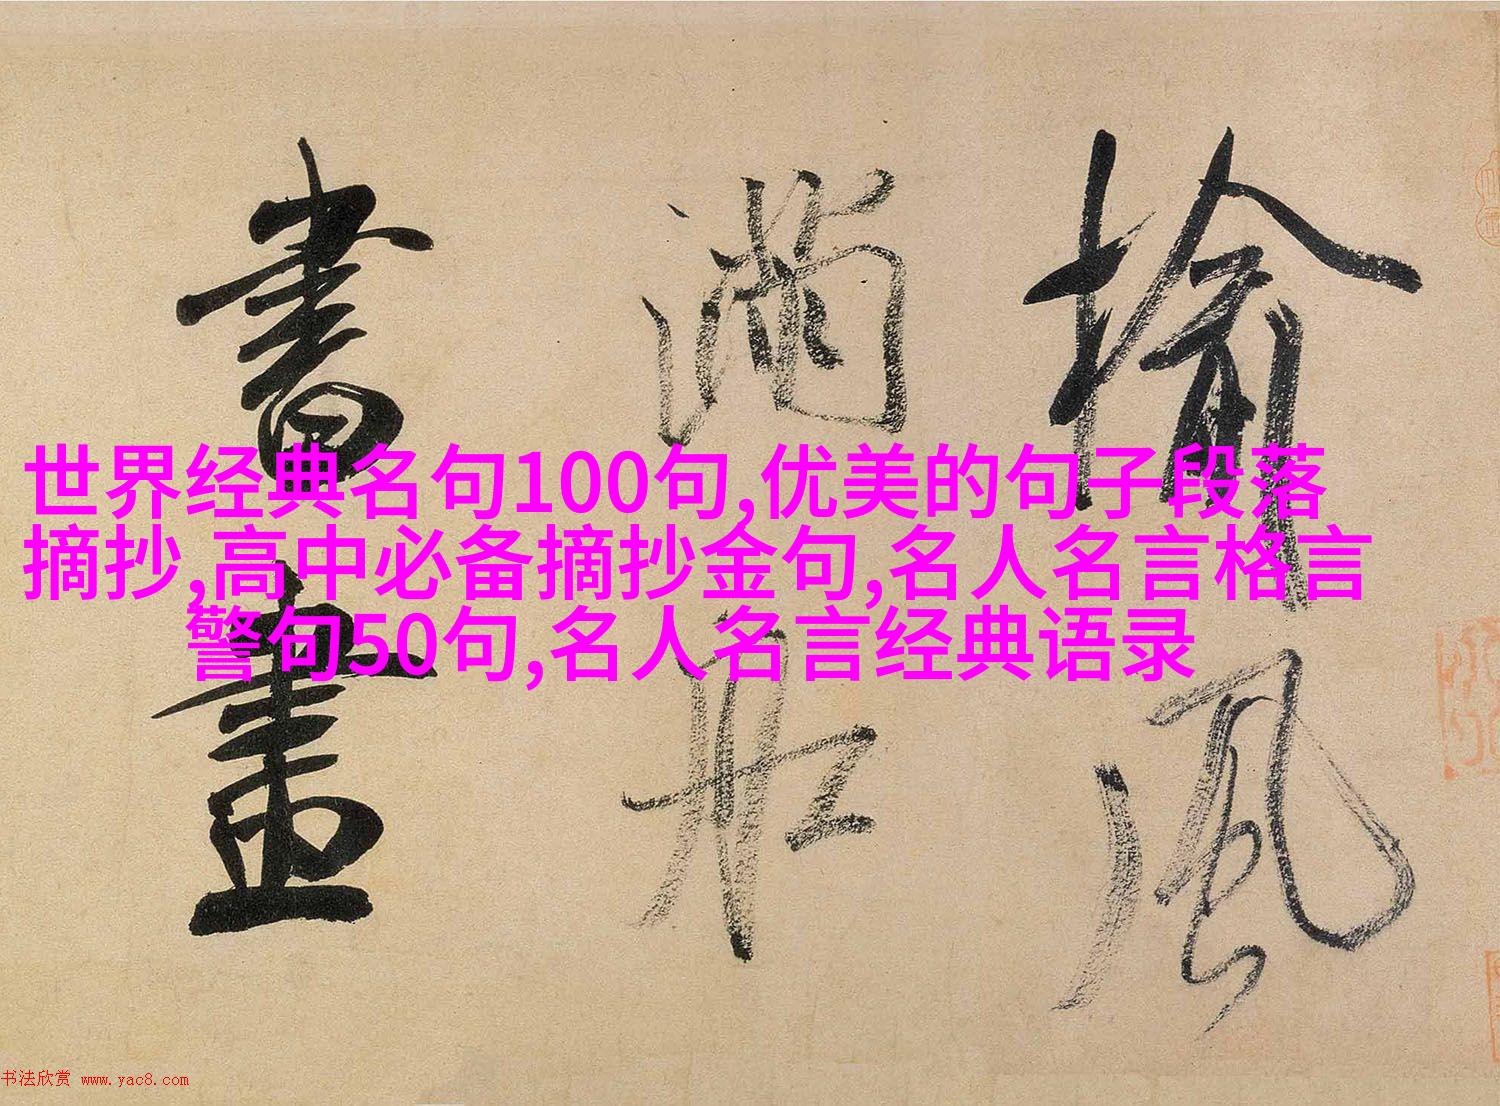 揄風
滿船
書畫
世界经典名句100句,优美的句子段落
摘抄,高中必备摘抄金句,名人名言格言
警句50句,名人名言经典语录
书法欣赏 www.yac8.com